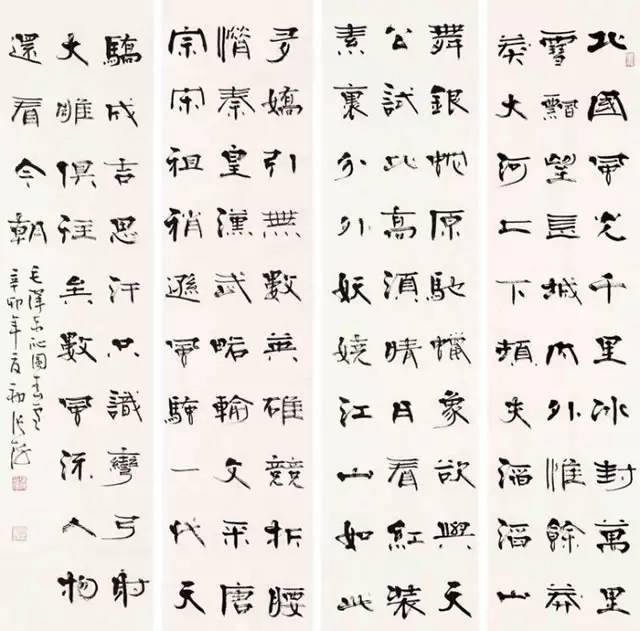 北國風光千里冰封萬里
雪飄望長城內外惟餘莽
莽大河上下頓失滔滔山
舞銀蛇原馳蠟象欲與天
公試比高須晴日看紅裝
素裹分外妖嬈江山如此
多嬌引無數英雄競折腰
惜秦皇漢武略輸文采唐
宗宋祖稍遜風騷一代天
驕成吉思汗只識彎弓射
大雕俱往矣數風流人物
還看今朝
毛澤東沁園春雪
辛卯年夏初張海